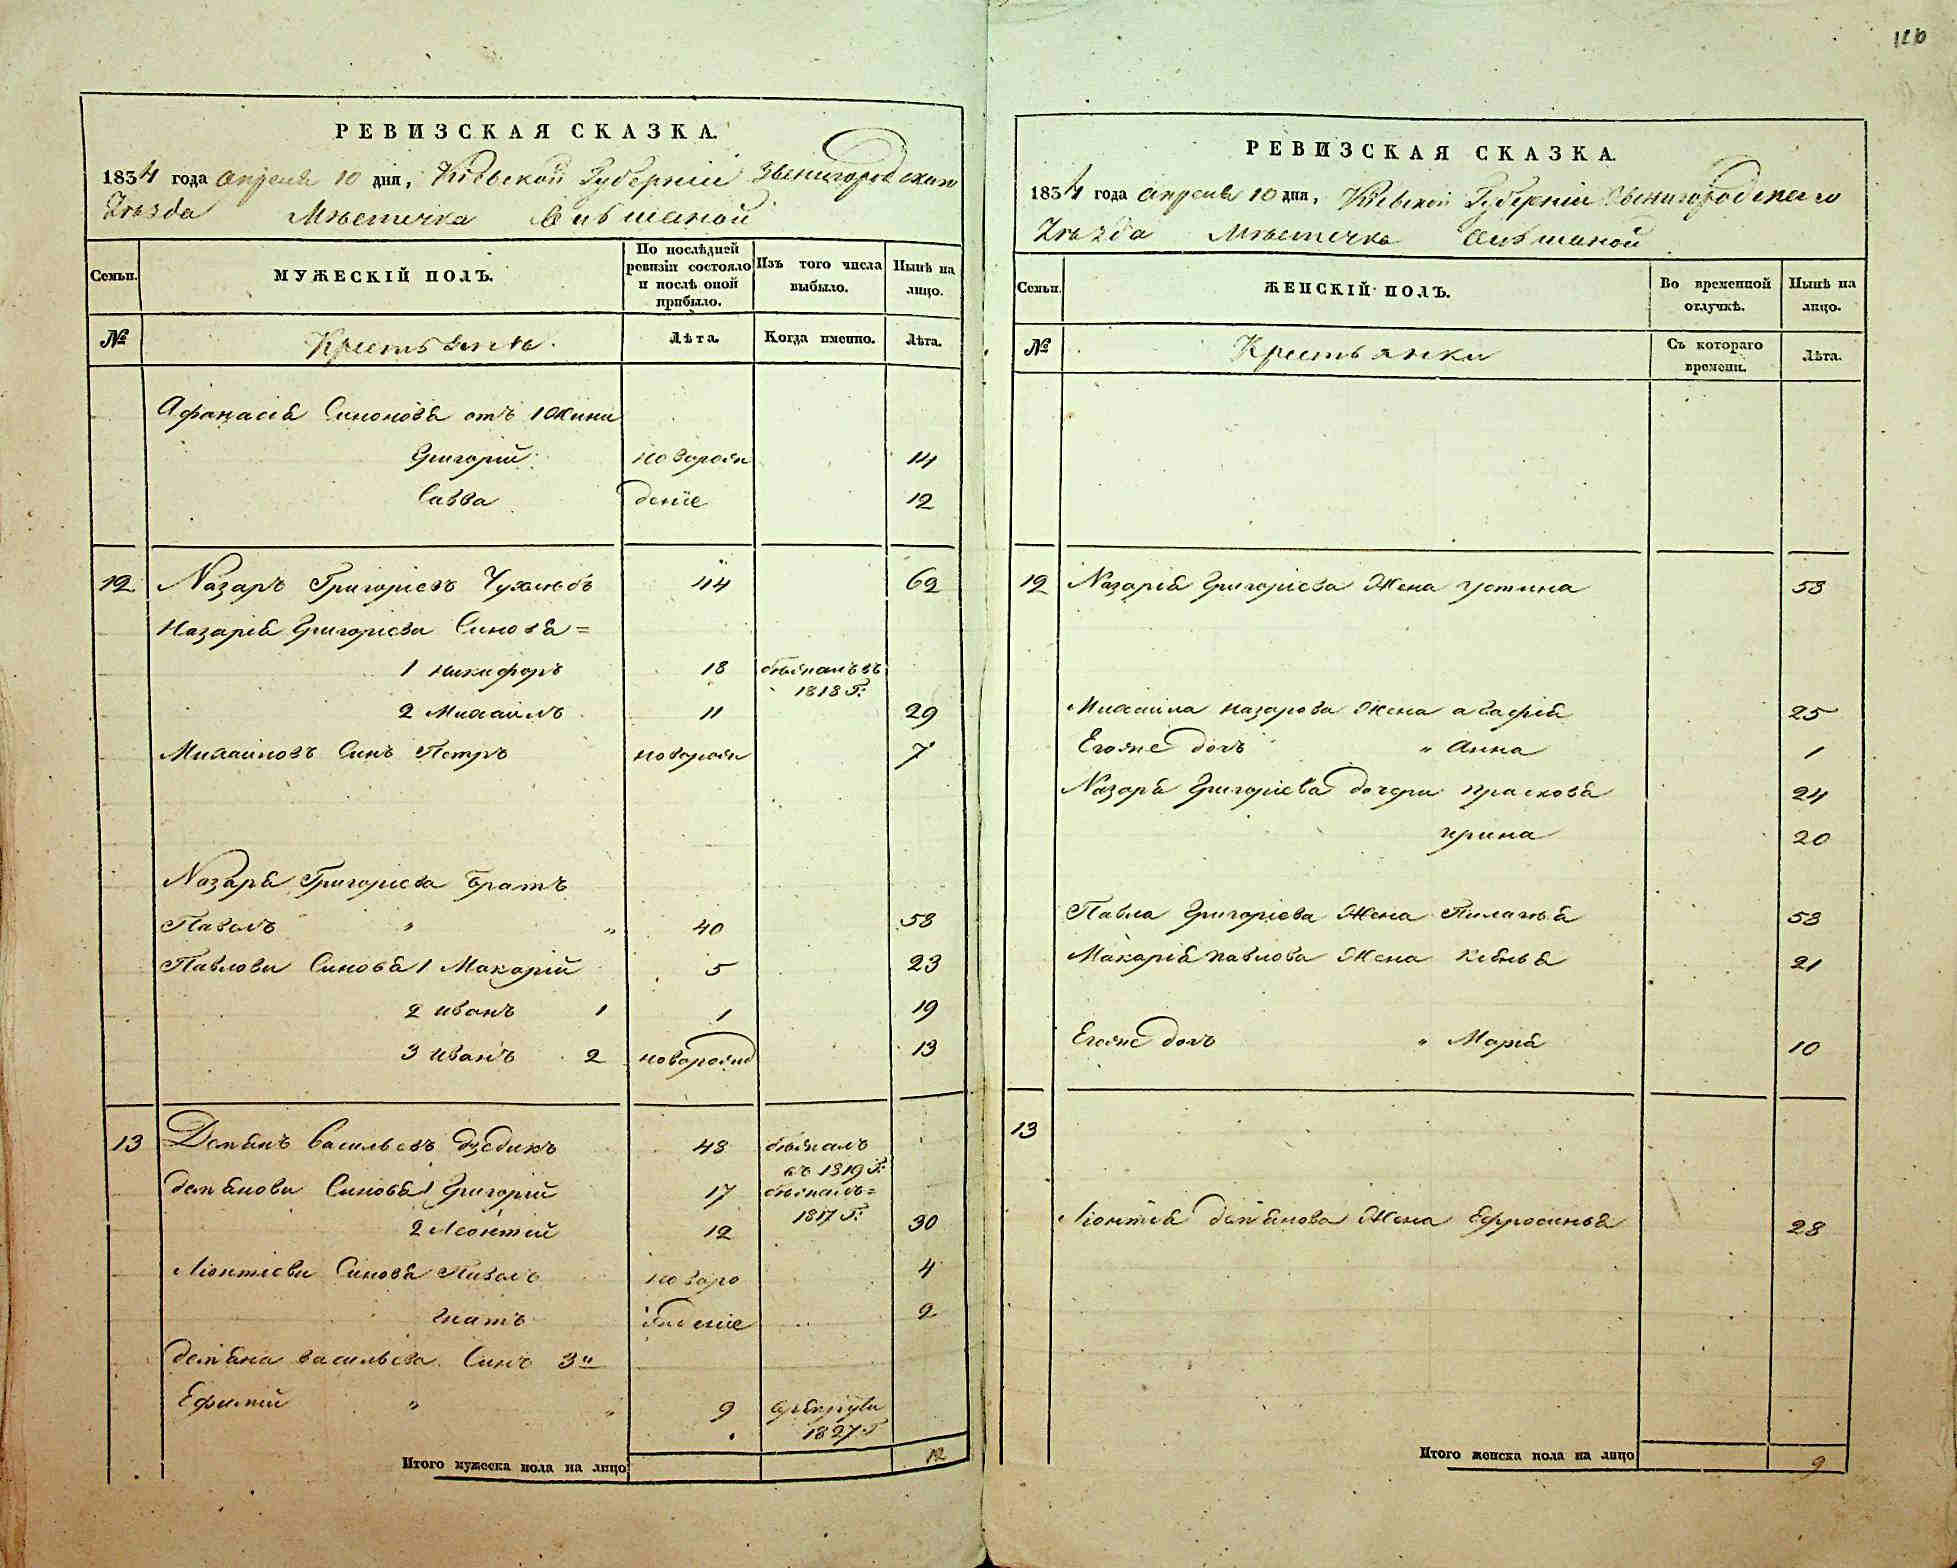 126
РЕВИЗСКАЯ СКАЗКА.
1834 года апреля 10 дня, Кіевской Губерніи Звенигородскаго
Уезда Мѣстечка Ольшаной
Семьи.
МУЖЕСКІЙ ПОЛЪ.
По послѣдней ревизіи состояло и послѣ оной прибыло.
Изъ того числа выбыло.
Нынѣ на лицо.
№
Крестьяне
Лѣта.
Когда именно.
Лѣта.
Афанасія Синовя отъ
Григорій новорож 14
Савва деніе 12
12 Назаръ Григоріевъ 44 62
Назарія Григоріева Синовя=
1 Никифоръ 18 въ
1818 Г:
2 Михаилъ 11 29
Михаиловъ Синъ Петръ новорож 7
Назаря Григоріева братъ
Павелъ " " 40 58
Павлови Синовя 1 Макарій 5 23
2 Иванъ 1 1 19
3 Иванъ 2 новорожд 13
13 Демянъ Васильевъ 48
въ 1819 Г:
Демянови Синовя 1 Григорій 17
1817 Г:
2 Леонтій 12 30
Ліонтіеви Синовя Павелъ новоро 4
Гнатъ жденіе 2
Демяна Васильева Синъ 3й
Ефимій " " 9
1827 Г
Итого мужеска пола на лицо 12
РЕВИЗСКАЯ СКАЗКА.
1834 года апреля 10 дня, Кіевской Губерніи Звенигородскаго
Уезда Мѣстечка Ольшаной
Семьи.
ЖЕНСКІЙ ПОЛЪ.
Во временной отлучкѣ.
Нынѣ на лицо.
№
Крестьянки
Съ котораго времени.
Лѣта.
12 Назарія Григоріева Жена Устина 58
Михаила Назарова Жена Агафія 25
Егоже дочъ " Анна 1
Назаря Григоріева дочери Прасковя 24
Ирина 20
Павла Григоріева Жена 58
Макарія Павлова Жена 21
Егоже дочъ " Марія 10
13
Ліонтія Демянова Жена Ефросинья 28
Итого женска пола на лицо 9